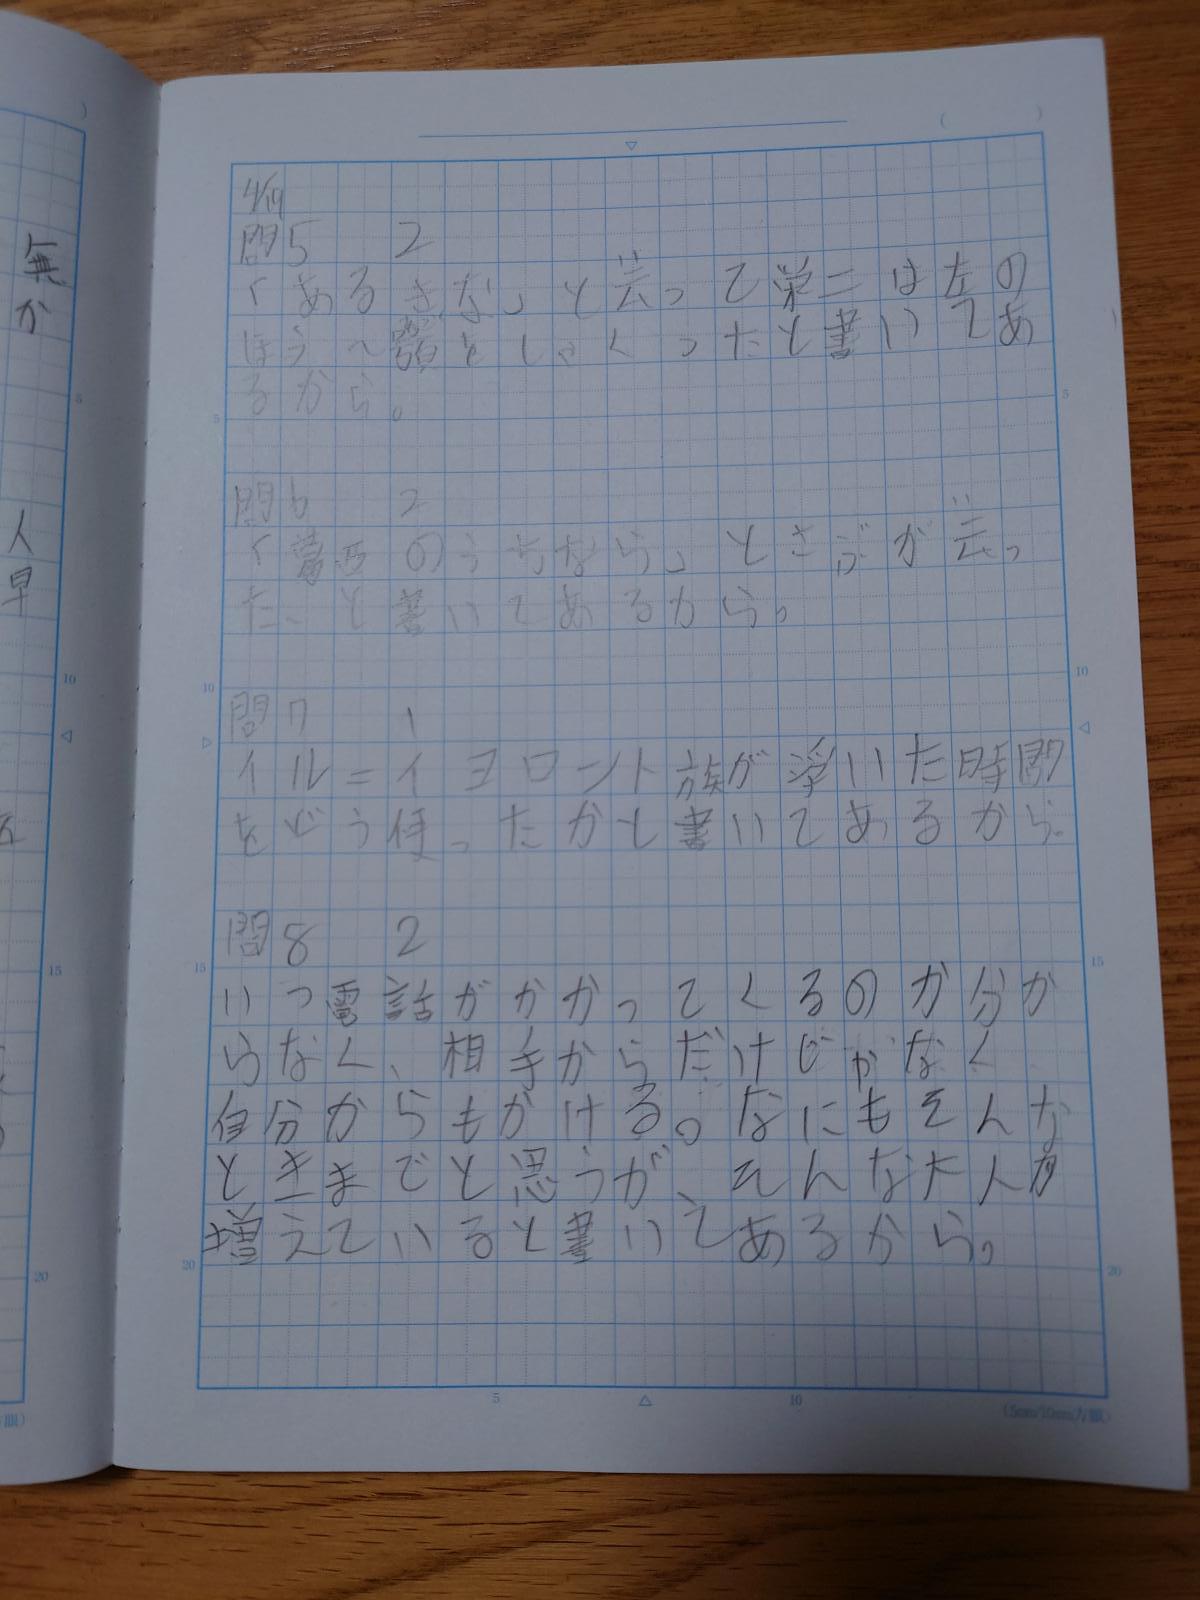 4/19
問5 2
「あるきな」と云って栄二は左の
ほうへ顎をしゃくったと書いてあ
るから。
問6 2
のうちなら」とさぶが云っ
た、と書いてあるから。
問7 1
イル=イヨロント族が浮いた時間
をどう使ったかと書いてあるから。
問8 2
いつ電話がかかってくるのか分か
らなく、相手からだけじゃなく
自分からもかける。なにもそんな
ときまでと思うが、そんな大人が
増えていると書いてあるから。
無
か
人
早
5
10
15
20
5
10
15
20
5
10
15
20
5
10
(5mm/10mm方眼)